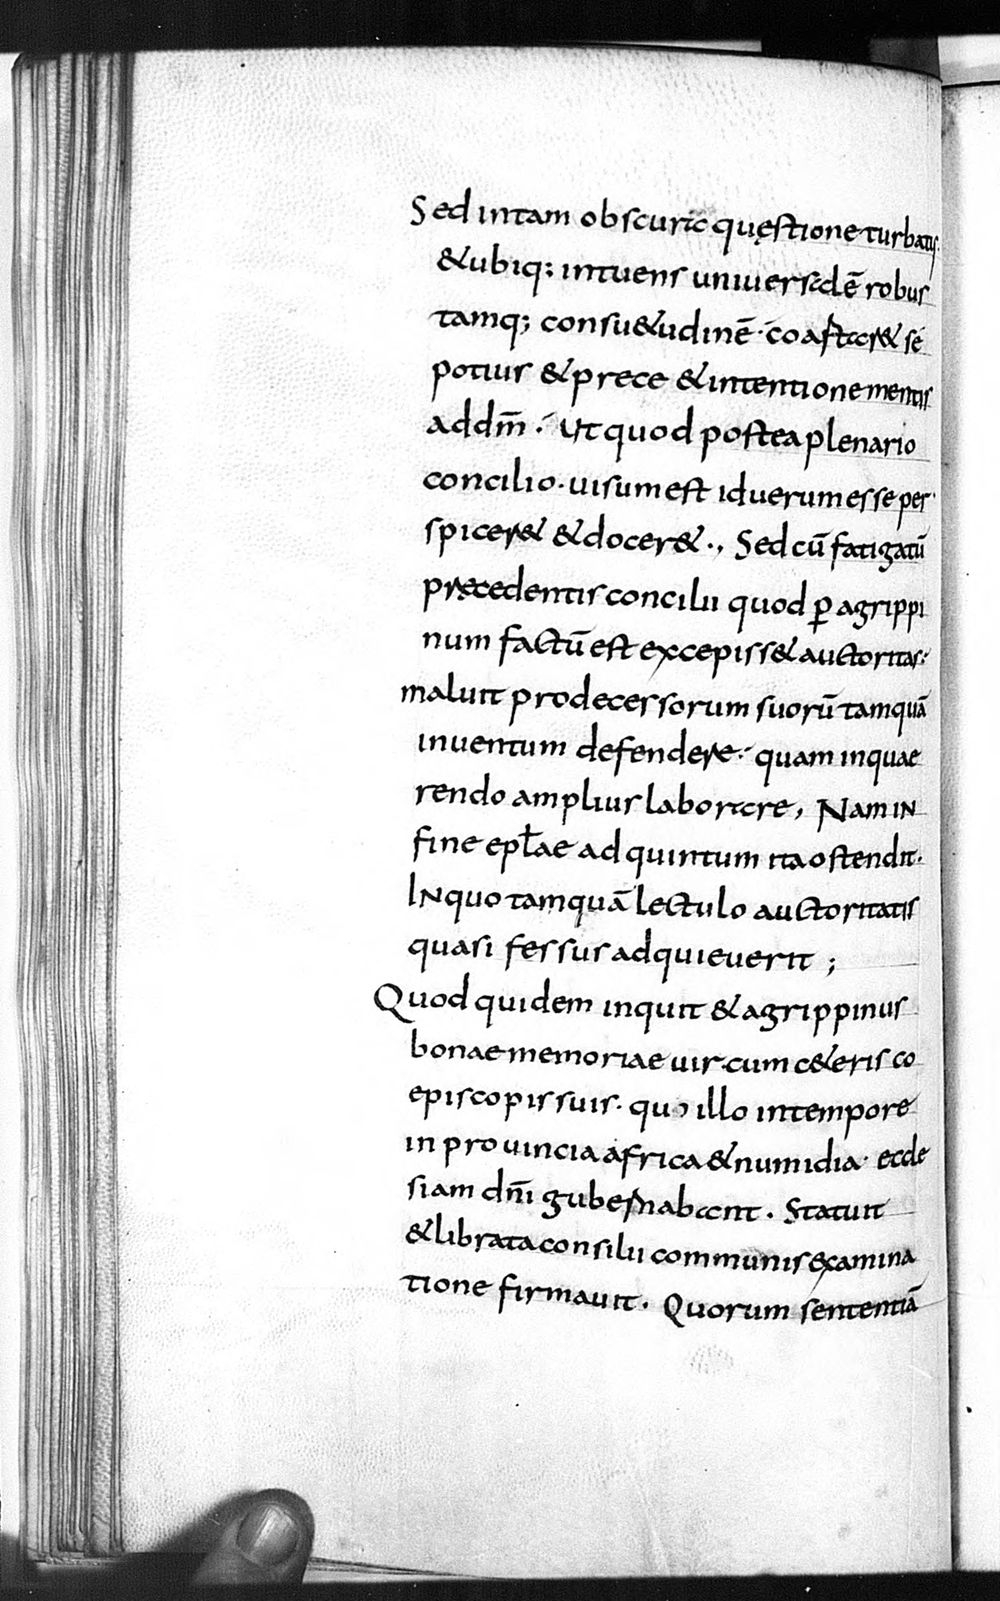 Sed intam obscura quęstione turbatis.
&ubiq; intuens uniuersalē robus
tamq; consu&udinē. coaftar& se
potius &prece &intentione mentis
addm̄. Ut quod postea plenario
concilio. uisum est id uerum esse per
spicer& &docer&., Sed cū fatigatū
praecedentis concilii quod ꝑ agrippi
num factū est excepiss& auctoritas.
maluit prodecessorum suorū tamquā
inuentum defendere. quam inquae
rendo amplius laborare, Nam IN
fine epł̄ae ad quintum ita ostendit.
INquo tamquā lectulo auctoritatis
quasi fessus adquieuerit ;
Quod quidem inquit & agrippinus
bonae memoriae uir. cum c&eris co
episcopis suis. quo illo intempore
in prouincia africa &numidia. eccle
siam dn̄i gubernabant. Statuit
&librata consilii communis examina
tione firmauit. Quorum sententiā